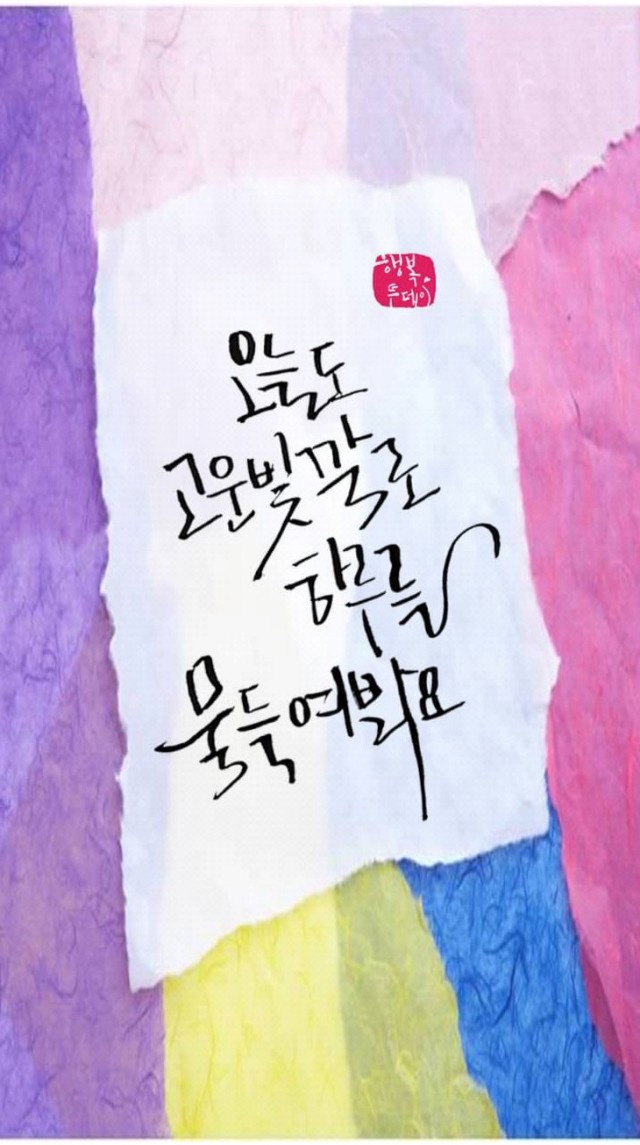 행복.
뚜데이
오늘도
고운빛깔로
하루를
물들여봐요